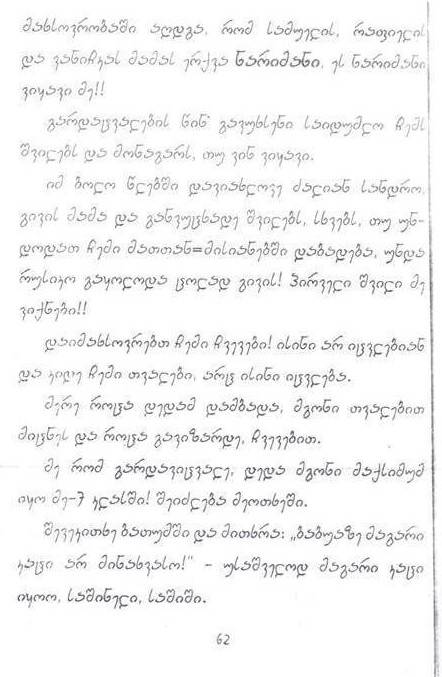 მახსოვრობაში აღდგა, რომ სამუელის, რაფიელის
და ვანიჩკას მამას ერქვა ნარიმანი, ეს ნარიმანი
ვიყავი მე!!
გარდაცვალების წინ გავუხსენი საიდუმლო ჩემს
შვილებს და მონაგარს, თუ ვინ ვიყავი.
იმ ბოლო წლებში დავიახლოვე ძალიან სანდრო,
გივის მამა და განვუცხადე შვილებს, სხვებს, თუ უნ-
დოდათ ჩემი მათთან=მისიანებში დაბადება, უნდა
რუსიკო გაყოლოდა ცოლად გივის! პირველი შვილი მე
ვიქნები!!
დაიმახსოვრებთ ჩემი ჩვევები! ისინი არ იცვლებიან
და კიდე ჩემი თვალები, არც ისინი იცვლება.
მერე როცა დედამ დამბადა, მგონი თვალებით
მიცნეს და როცა გავიზარდე, ჩვევებით.
მე რომ გარდავიცვალე, დედა მგონი მაქსიმუმ
იყო მე-7 კლასში! შეიძლება მეოთხეში.
შევეკითხე ბათუმში და მითხრა: „ბაბუაზე მაგარი
კაცი არ მინახვასო!" – უსაშველოდ მაგარი კაცი
იყოო, საშინელი, საშიში.
62